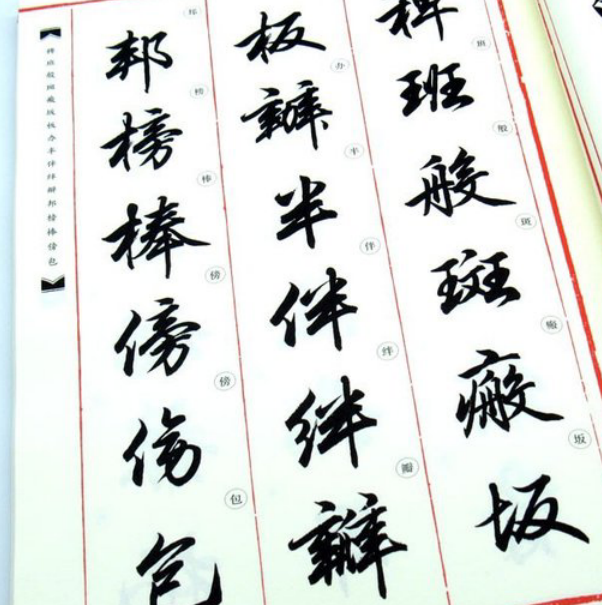 稗班般斑瘢坂
班般斑瘢坂
板辦半伴絆瓣
办半伴绊瓣
邦榜棒傍傍包
邦榜棒傍傍包
稗班般斑瘢坂板办半伴绊瓣邦榜棒傍包